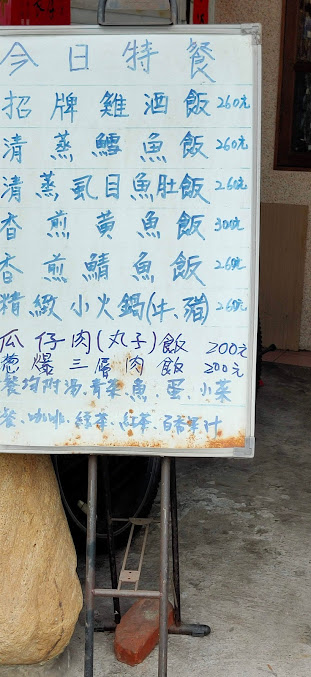 今日特餐
招牌雞酒飯 260元
清蒸鱈魚飯 260元
清蒸虱目魚肚飯 260元
香煎黃魚飯 300元
香煎鯖魚飯 260元
精緻小火鍋(牛、豬) 260元
瓜仔肉(丸子)飯 200元
蔥爆三層肉飯 200元
餐均附湯、青菜、魚、蛋、小菜
餐、冰咖、綠茶、紅茶、百香果汁